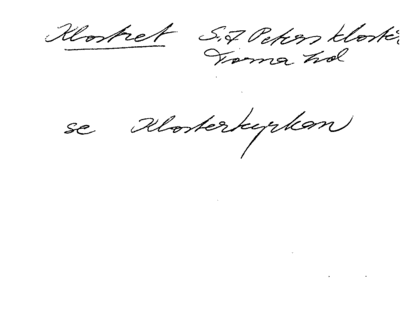 Klostret S:t Peters kloster
Torna hd
se Klosterkyrkan